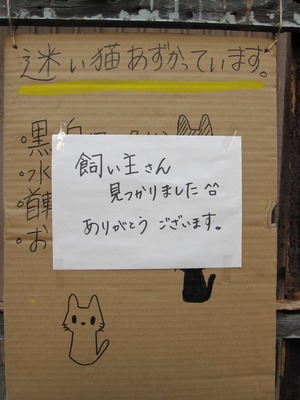 迷い猫あずかっています。
・黒白
・水
・首
・お
飼い主さん
見つかりました^^
ありがとうございます。